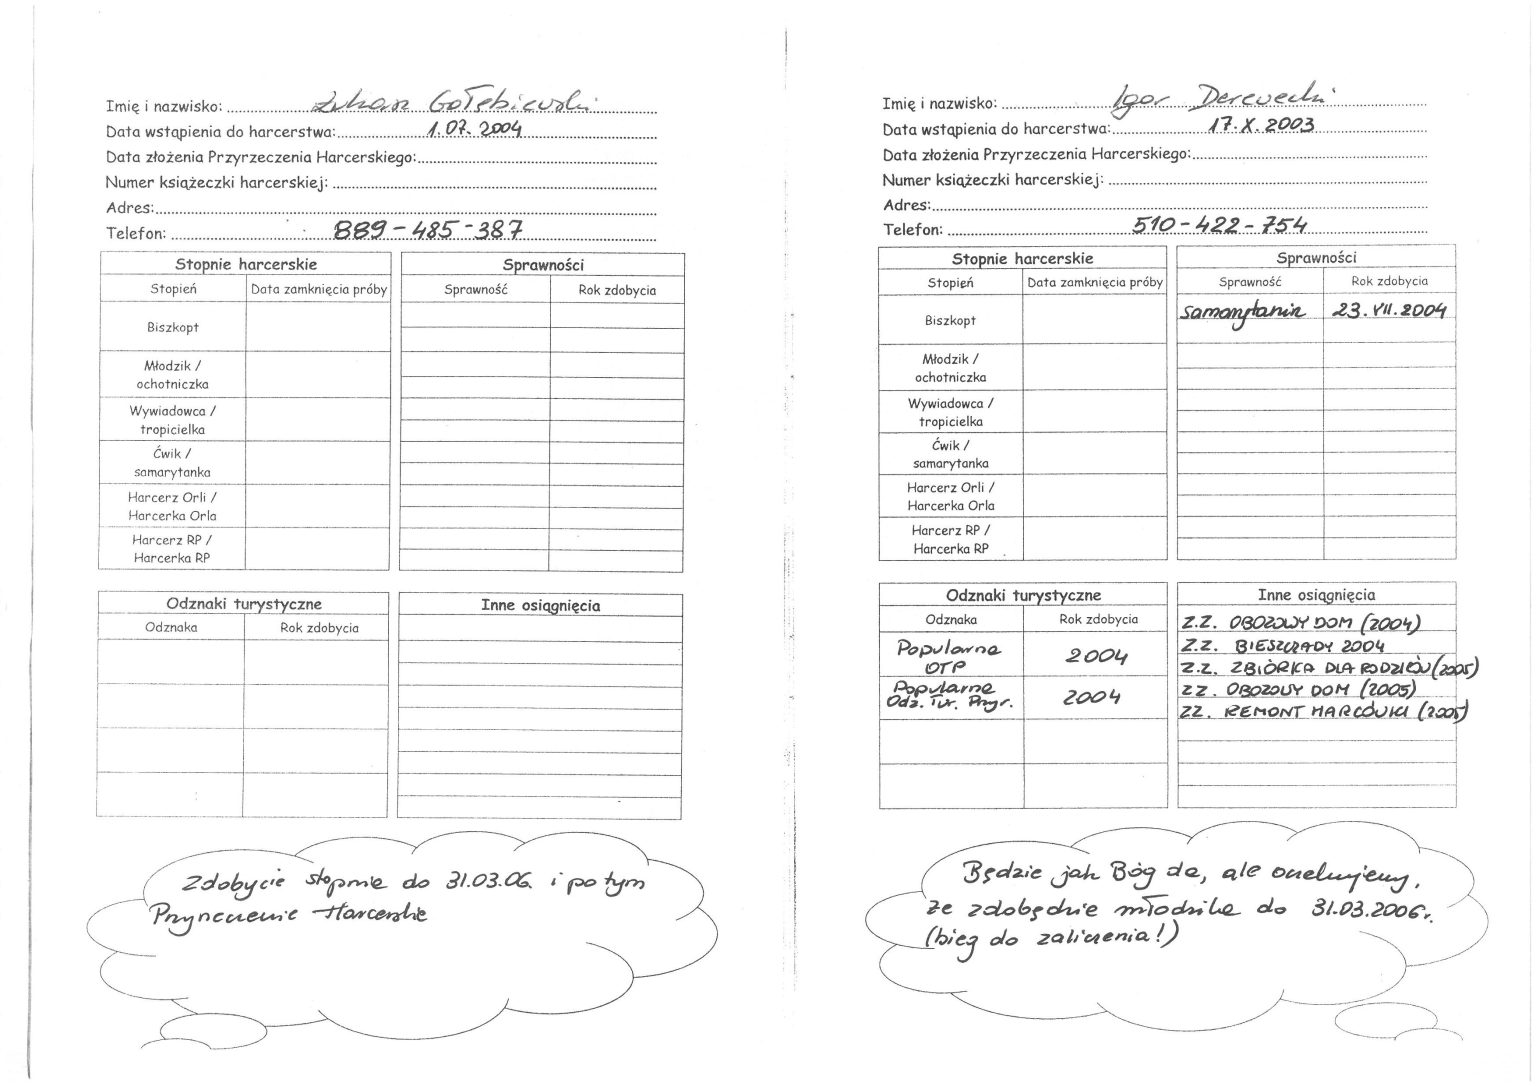 Imię i nazwisko: Łukasz Gołębiewski
Data wstąpienia do harcerstwa: 1.07.2004
Data złożenia Przyrzeczenia Harcerskiego:
Numer książeczki harcerskiej:
Adres:
Telefon: 889-485-387
Stopnie harcerskie
Stopień Data zamknięcia próby
Biszkopt
Młodzik /
ochotniczka
Wywiadowca /
tropicielka
Ćwik /
samarytanka
Harcerz Orli /
Harcerka Orla
Harcerz RP /
Harcerka RP
Sprawności
Sprawność Rok zdobycia
Odznaki turystyczne
Odznaka Rok zdobycia
Inne osiągnięcia
Zdobycie stopnia do 31.03.06. i po tym
Przyrzeczenie Harcerskie
Imię i nazwisko: Igor Derewecki
Data wstąpienia do harcerstwa: 17.X.2003
Data złożenia Przyrzeczenia Harcerskiego:
Numer książeczki harcerskiej:
Adres:
Telefon: 510-422-754
Stopnie harcerskie
Stopień Data zamknięcia próby
Biszkopt
Młodzik /
ochotniczka
Wywiadowca /
tropicielka
Ćwik /
samarytanka
Harcerz Orli /
Harcerka Orla
Harcerz RP /
Harcerka RP
Sprawności
Sprawność Rok zdobycia
samarytanin 23.VII.2004
Odznaki turystyczne
Odznaka Rok zdobycia
Popularna
OTP 2004
Popularna
Odz. Tur. Przyr. 2004
Inne osiągnięcia
Z.Z. OBOZOWY DOM (2004)
Z.Z. BIESZCZADY 2004
Z.Z. ZBIÓRKA DLA RODZICÓW (2005)
ZZ. OBOZOWY DOM (2005)
ZZ. REMONT HARCÓWKI (2005)
Będzie jak Bóg da, ale oczekujemy,
że zdobędzie młodzika do 31.03.2006r.
(bieg do zaliczenia!)